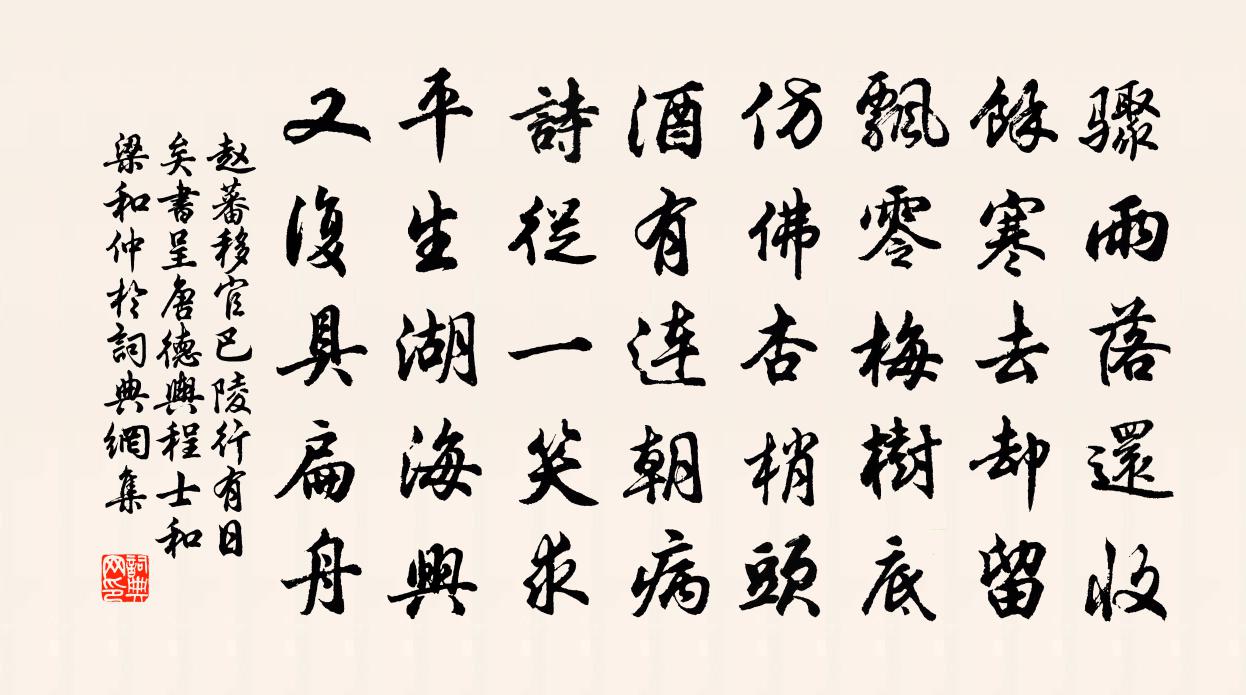 驟雨落還收
餘寒去却留
飄零梅樹底
仿佛杏梢頭
酒有连朝病
詩從一笑求
平生湖海興
又復具扁舟
赵蕃移官巴陵行有日
矣書呈唐德興程士和
梁和仲於詞典網集
詞典網印